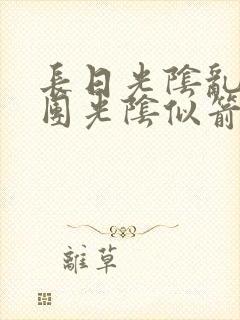 長日光陰亂
團光陰似箭
離草